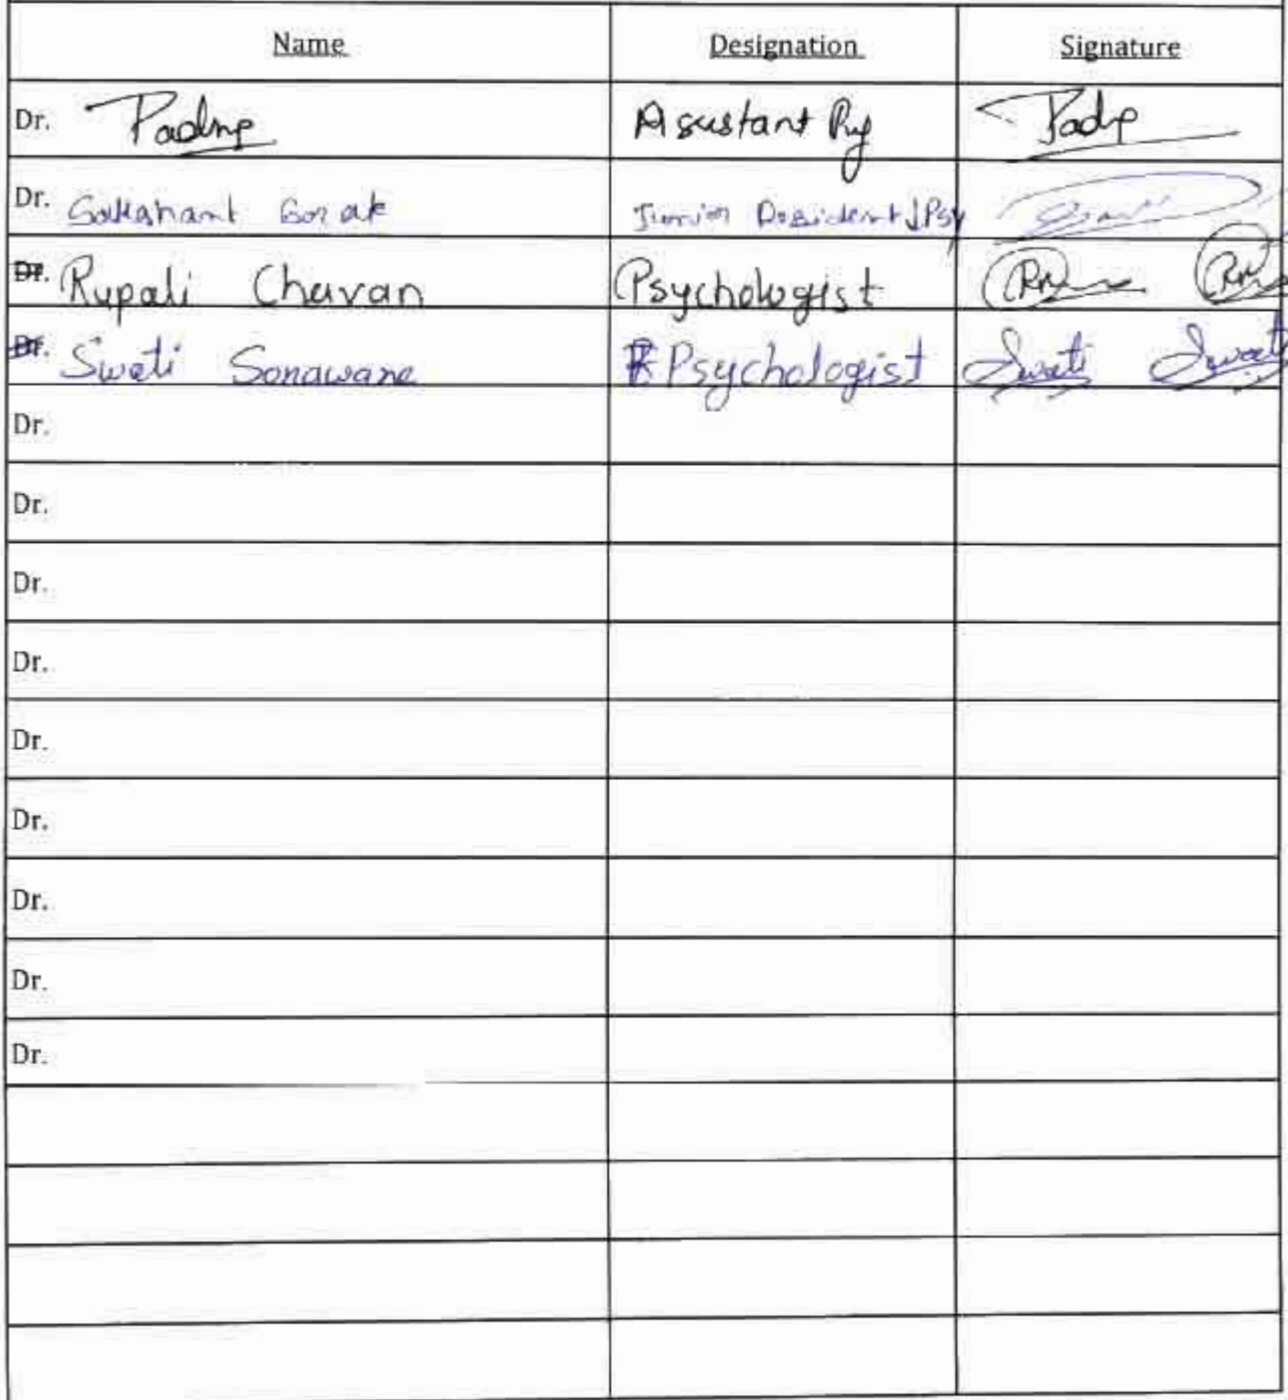 Name Designation Signature
Dr. Assistant
Dr. Junior Resident Psy
Dr. Rupali Chavan Psychologist
Dr. Swati Sonawane Psychologist Swati Swati
Dr.
Dr.
Dr.
Dr.
Dr.
Dr.
Dr.
Dr.
Dr.